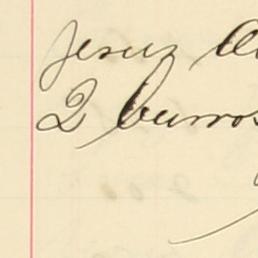 Jesus
2 burros